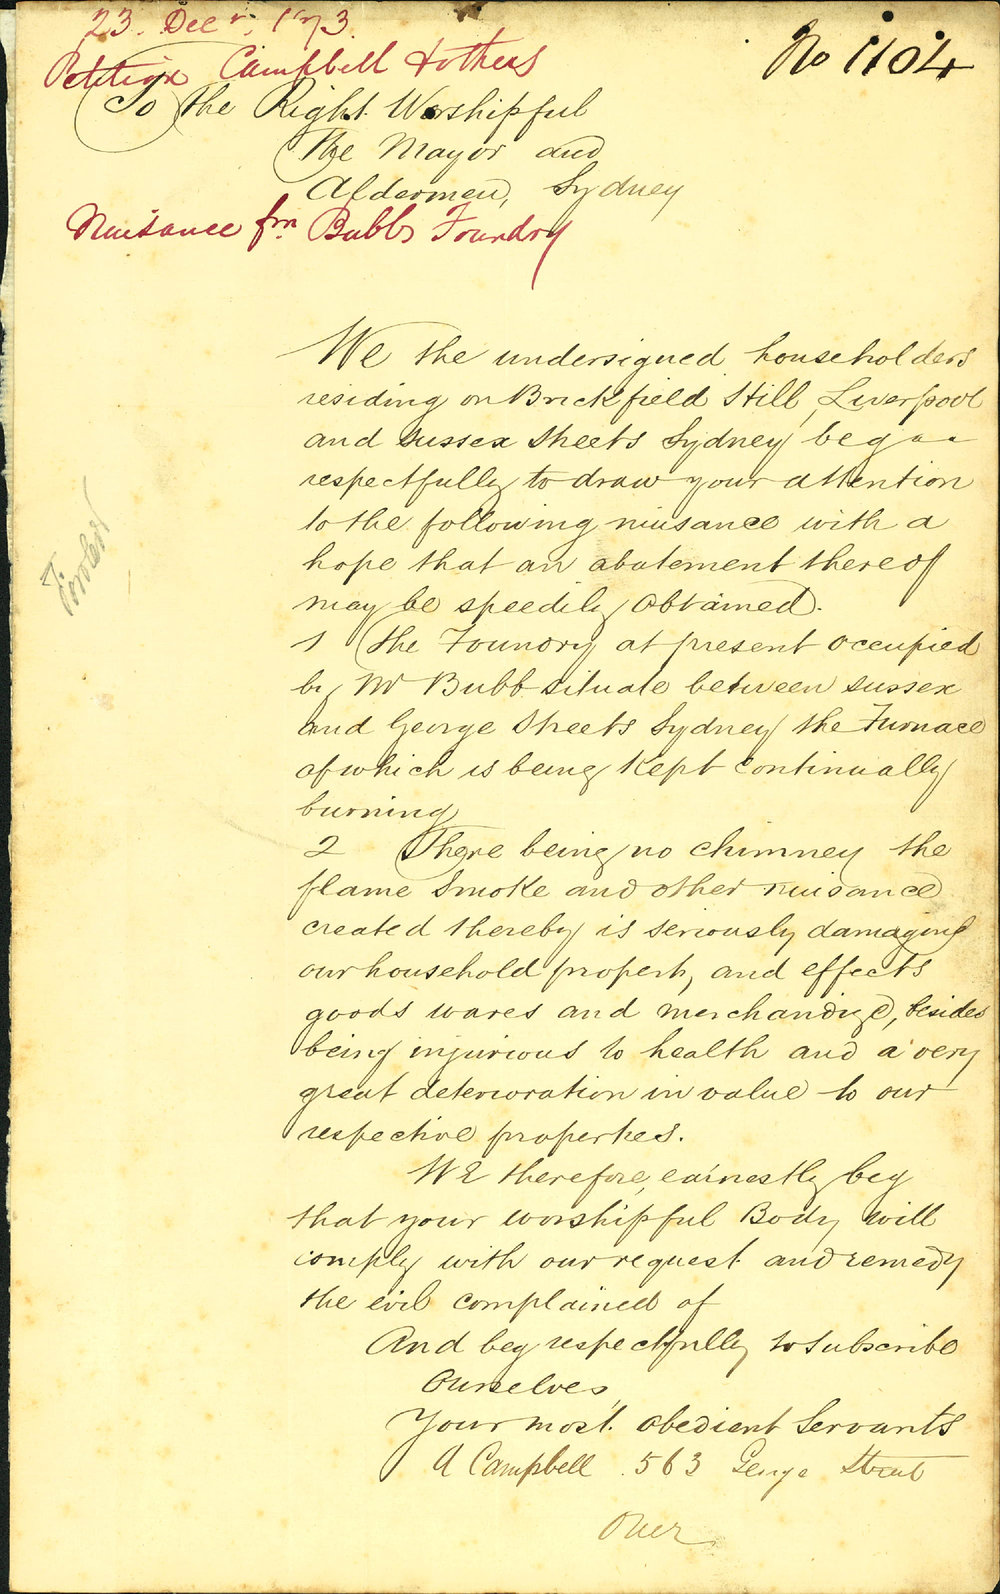 23. Decr. 1873.
No 1104
Petition Campbell & others
To The Right Worshipful
The Mayor and
Aldermen, Sydney
Nuisance frm Bubbs Foundry
We the undersigned householders
residing on Brickfield Hill, Liverpool
and Sussex Streets Sydney beg
respectfully to draw your attention
to the following nuisance with a
hope that an abatement thereof
may be speedily obtained.
1 The Foundry at present occupied
by Mr Bubb situate between Sussex
and George Streets Sydney the Furnace
of which is being Kept Continually
burning
2 There being no chimney the
flame Smoke and other nuisance
created thereby is seriously damaging
our household property and effects
goods wares and merchandize, besides
being injurious to health and a very
great deterioration in value to our
respective properties.
We therefore, earnestly beg
that your worshipful Body will
comply with our request and remedy
the evil complained of
And beg respectfully to subscribe
Ourselves,
Your most obedient Servants
A Campbell . 563 George Street
Over
Fowler